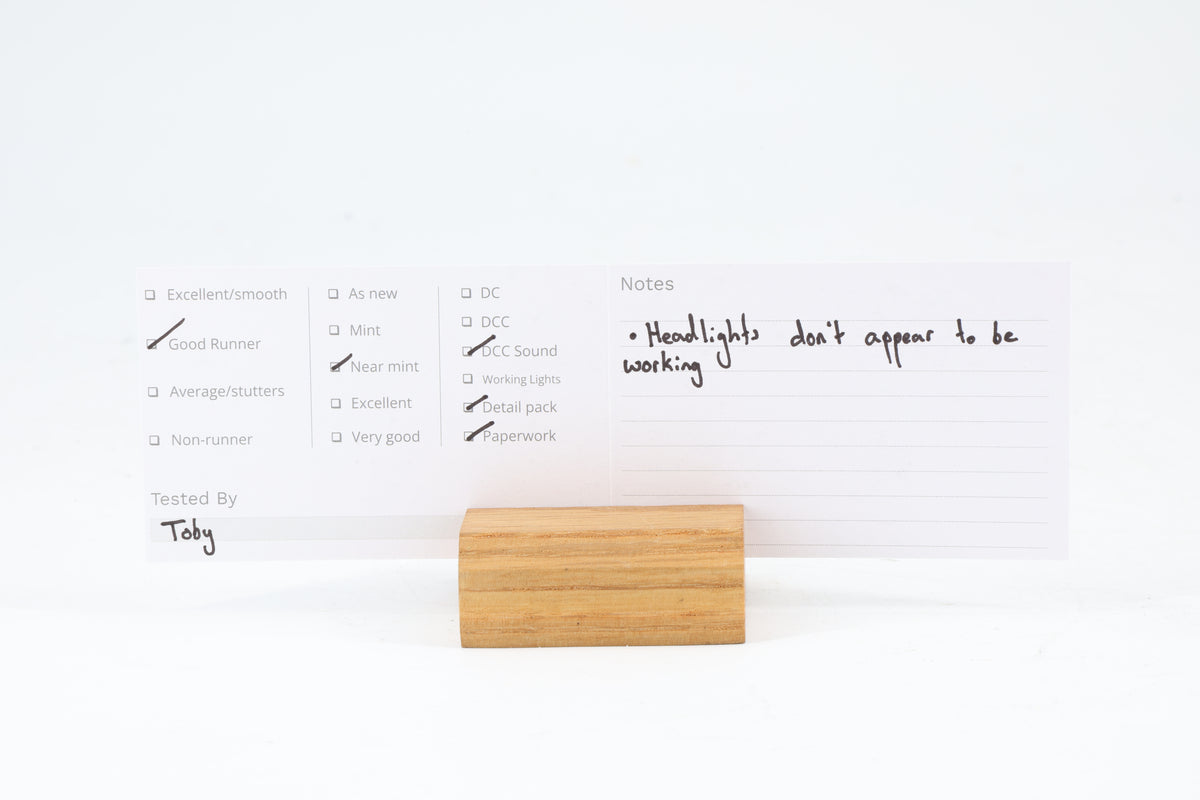 Excellent/smooth
Good Runner
Average/stutters
Non-runner
As new
Mint
Near mint
Excellent
Very good
DC
DCC
DCC Sound
Working Lights
Detail pack
Paperwork
Tested By
Toby
Notes
• Headlights don't appear to be
working